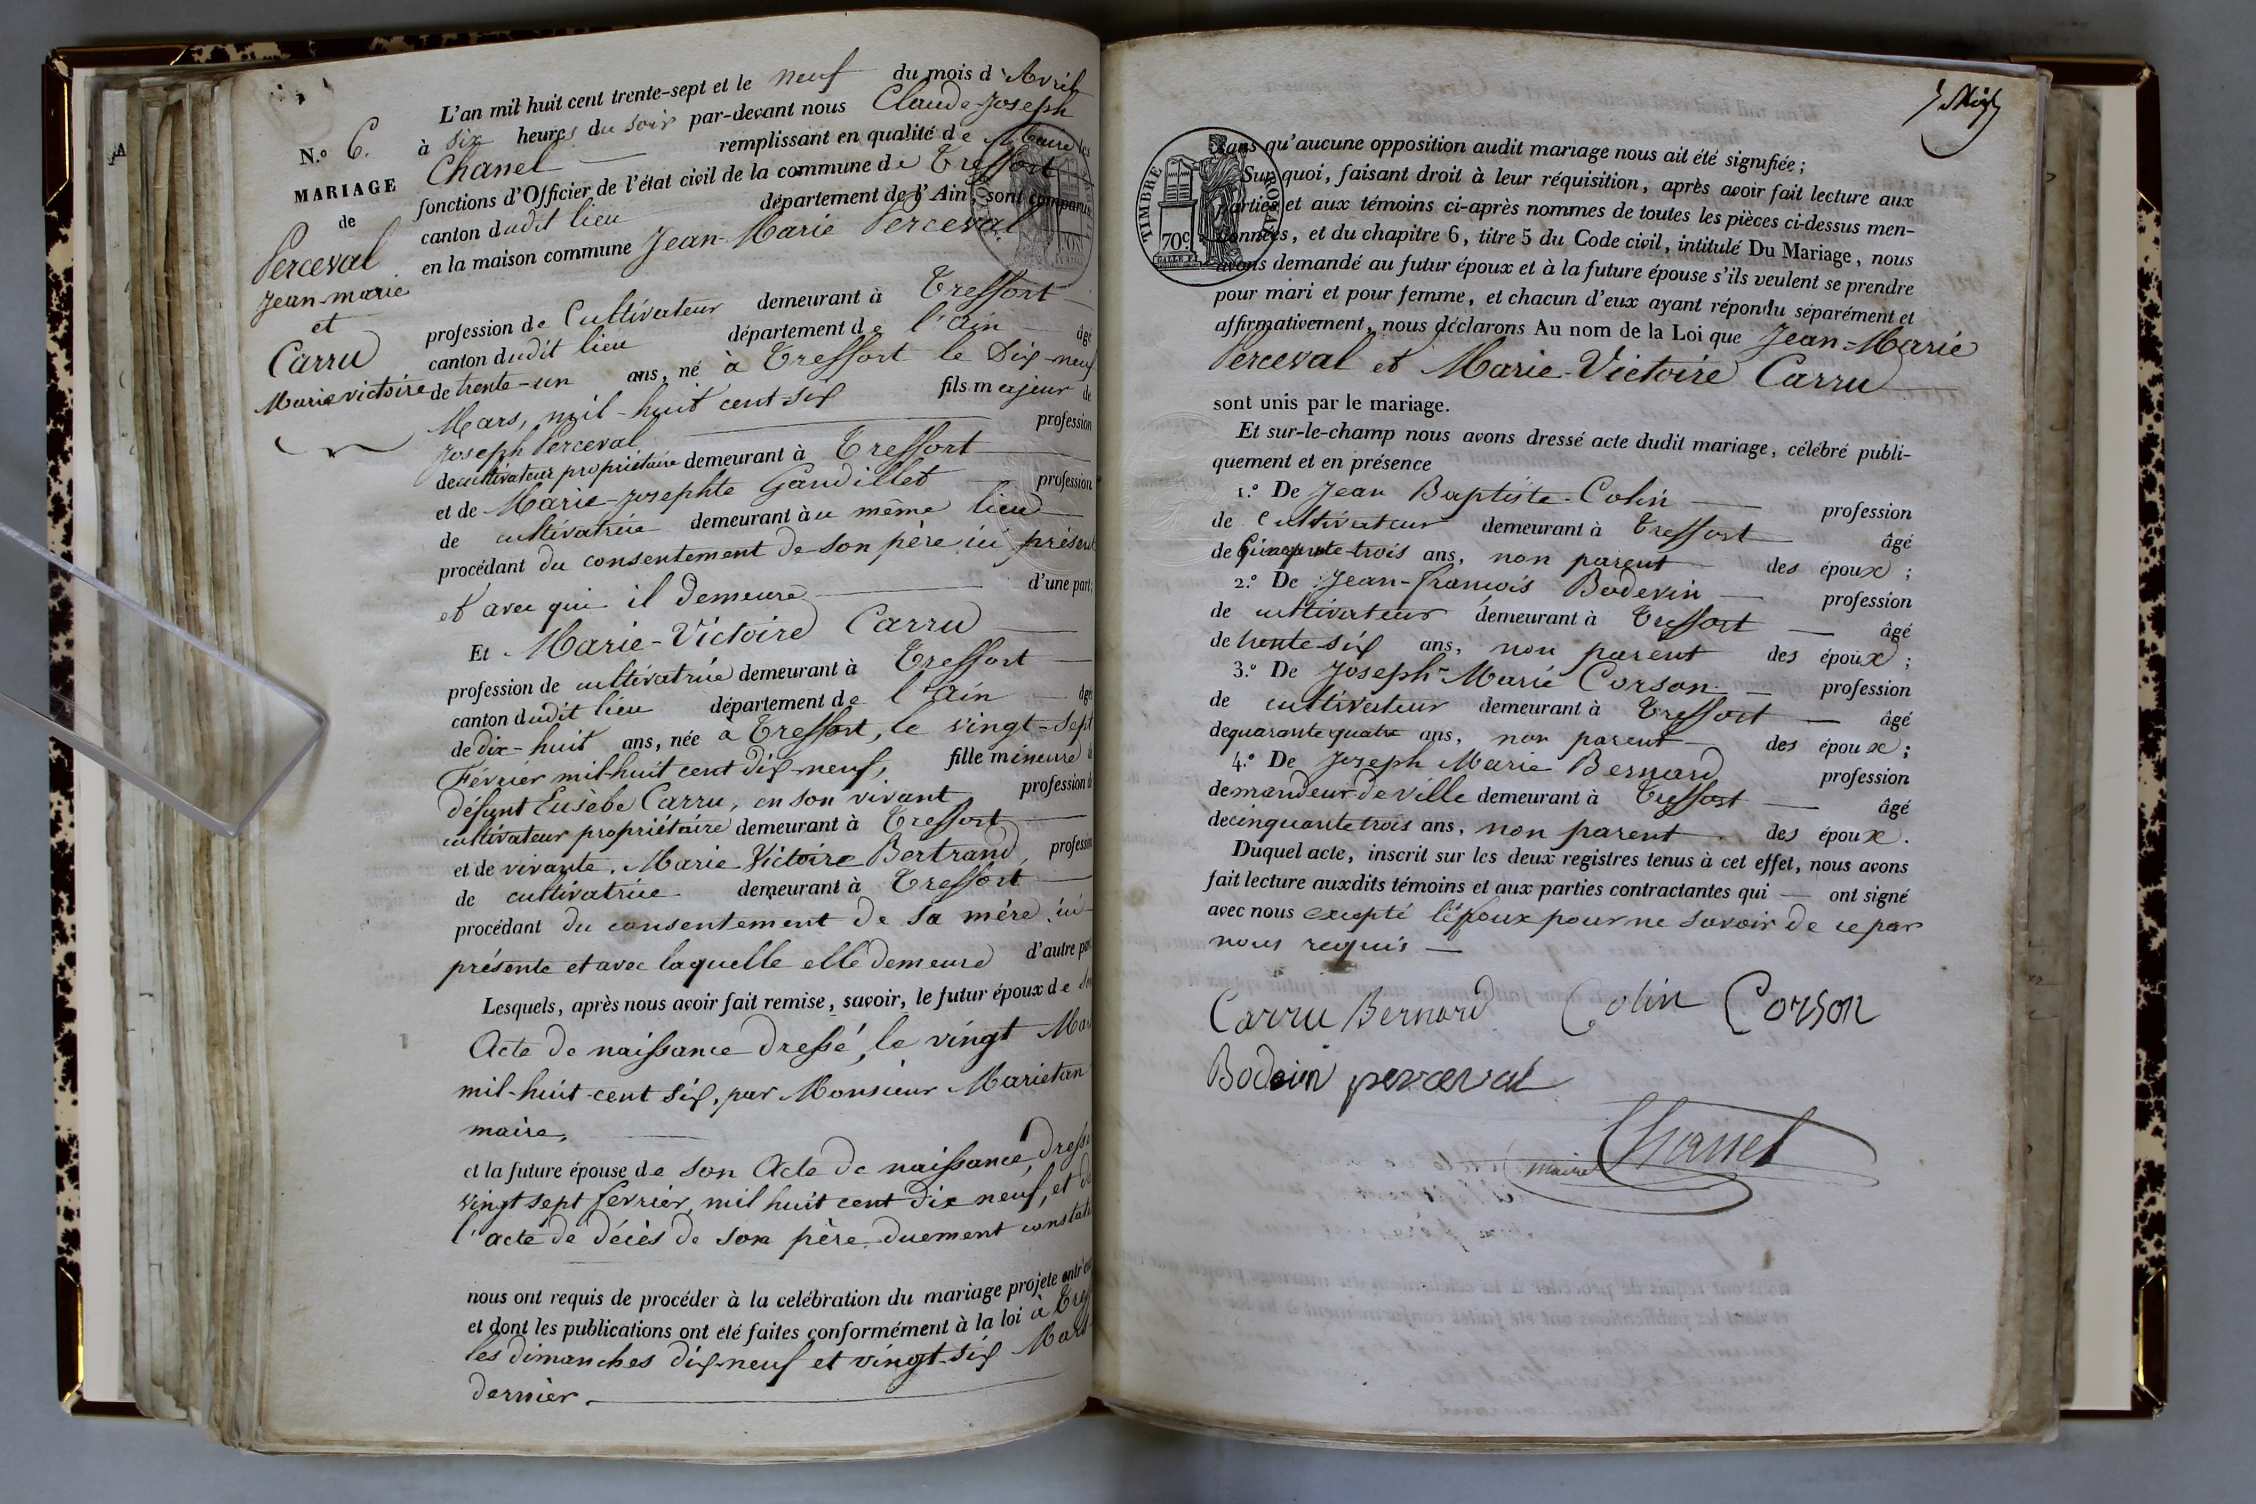 L'an mil huit cent trente-sept et le neuf du mois d'Avril
à six heures du soir par-devant nous Claude-Joseph
Chanel remplissant en qualité de Maire les
fonctions d'Officier de l'état civil de la commune de Treffort
canton dudit lieu département de l'Ain, sont comparus
en la maison commune Jean-Marie Perceval
N.o 6.
MARIAGE
de
Perceval
Jean-marie
et
Carru
Marie victoire
profession de Cultivateur demeurant à Treffort
canton dudit lieu département de l'ain âgé
de trente-un ans, né à Treffort le Dix-neuf
Mars, mil-huit cent six fils majeur de
Joseph Perceval profession
de cultivateur propriétaire demeurant à Treffort
et de Marie-Josephte Gandillet profession
de cultivatrice demeurant au même lieu
procédant du consentement de son père ici présent
et avec qui il demeure d'une part;
Et Marie-Victoire Carru
profession de cultivatrice demeurant à Treffort
canton dudit lieu département de l'ain âgée
de dix-huit ans, née à Treffort, le vingt-sept
Février mil-huit cent dix-neuf, fille mineure de
défunt Eusèbe Carru, en son vivant profession de
cultivateur propriétaire demeurant à Treffort
et de vivante, Marie Victoire Bertrand, profession
de cultivatrice demeurant à Treffort
procédant du consentement de sa mère ici
présente et avec laquelle elle demeure d'autre part
Lesquels, après nous avoir fait remise, savoir, le futur époux de son
Acte de naissance dressé, le vingt Mars
mil-huit-cent six, par Monsieur Marietan
maire,
et la future épouse de son Acte de naissance, dressé
vingt sept février, mil huit cent dix neuf, et de
l'acte de décès de son père duement constaté
nous ont requis de procéder à la celébration du mariage projeté entr'eux
et dont les publications ont été faites conformément à la loi à Treff
les dimanches dix-neuf et vingt-six Mars
dernier.
TIMBRE ROYAL
70c
sans qu'aucune opposition audit mariage nous ait été signifiée;
Sur quoi, faisant droit à leur réquisition, après avoir fait lecture aux
parties et aux témoins ci-après nommes de toutes les pièces ci-dessus men-
tionnées, et du chapitre 6, titre 5 du Code civil, intitulé Du Mariage, nous
avons demandé au futur époux et à la future épouse s'ils veulent se prendre
pour mari et pour femme, et chacun d'eux ayant répondu séparément et
affirmativement, nous déclarons Au nom de la Loi que Jean-Marie
Perceval et Marie-Victoire Carru
sont unis par le mariage.
Et sur-le-champ nous avons dressé acte dudit mariage, célébré publi-
quement et en présence
1.o De Jean Baptiste Colin profession
de cultivateur demeurant à Treffort âgé
de Cinquante-trois ans, non parent des époux;
2.o De Jean-François Bodevin profession
de cultivateur demeurant à Treffort âgé
de trente-six ans, non parent des époux;
3.o De Joseph-Marie Corson profession
de cultivateur demeurant à Treffort âgé
de quarante quatre ans, non parent des époux;
4.o De Joseph Marie Bernard profession
de mandeur de ville demeurant à Treffort âgé
de cinquante trois ans, non parent des époux.
Duquel acte, inscrit sur les deux registres tenus à cet effet, nous avons
fait lecture auxdits témoins et aux parties contractantes qui ont signé
avec nous excepté l'époux pour ne savoir de ce par
nous requis
Carru Bernard Colin Corson
Bodevin perceval
maire Chanel